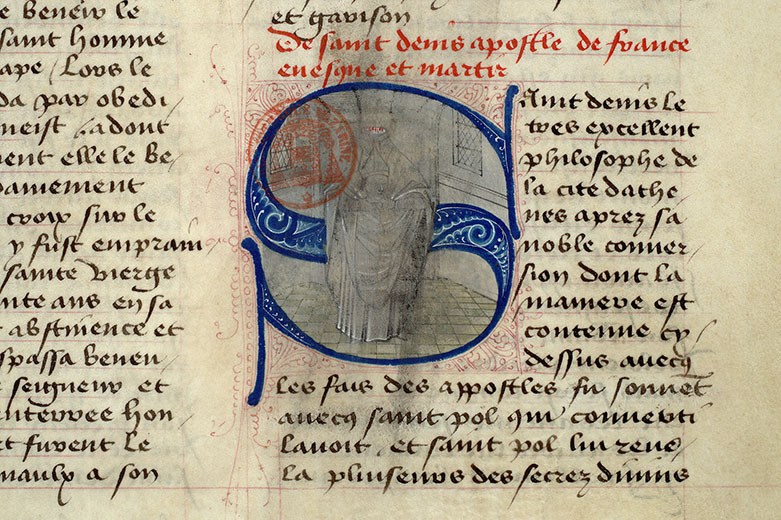 e beneir le
saint homme
ape / Lors le
da par obedi
neist / adont
ent elle le be
pamement
croix sur le
y fust empraint
sainte vierge
ente ans en sa
abstinence et
spassa beneu
seigneur et
enterree hon
rt furent le
maulx a son
et garison
De saint denis apostle de france
evesque et martir
Saint denis le
tres excellent
philosophe de
la cite dathe
nes aprez sa
noble conver
sion dont la
maniere est
contenue cy
dessus avecq
les fais des appostles fu sonnet
avecq saint pol qui converti
lavoit . et saint pol lui reve
la pluiseurs des secrez divins